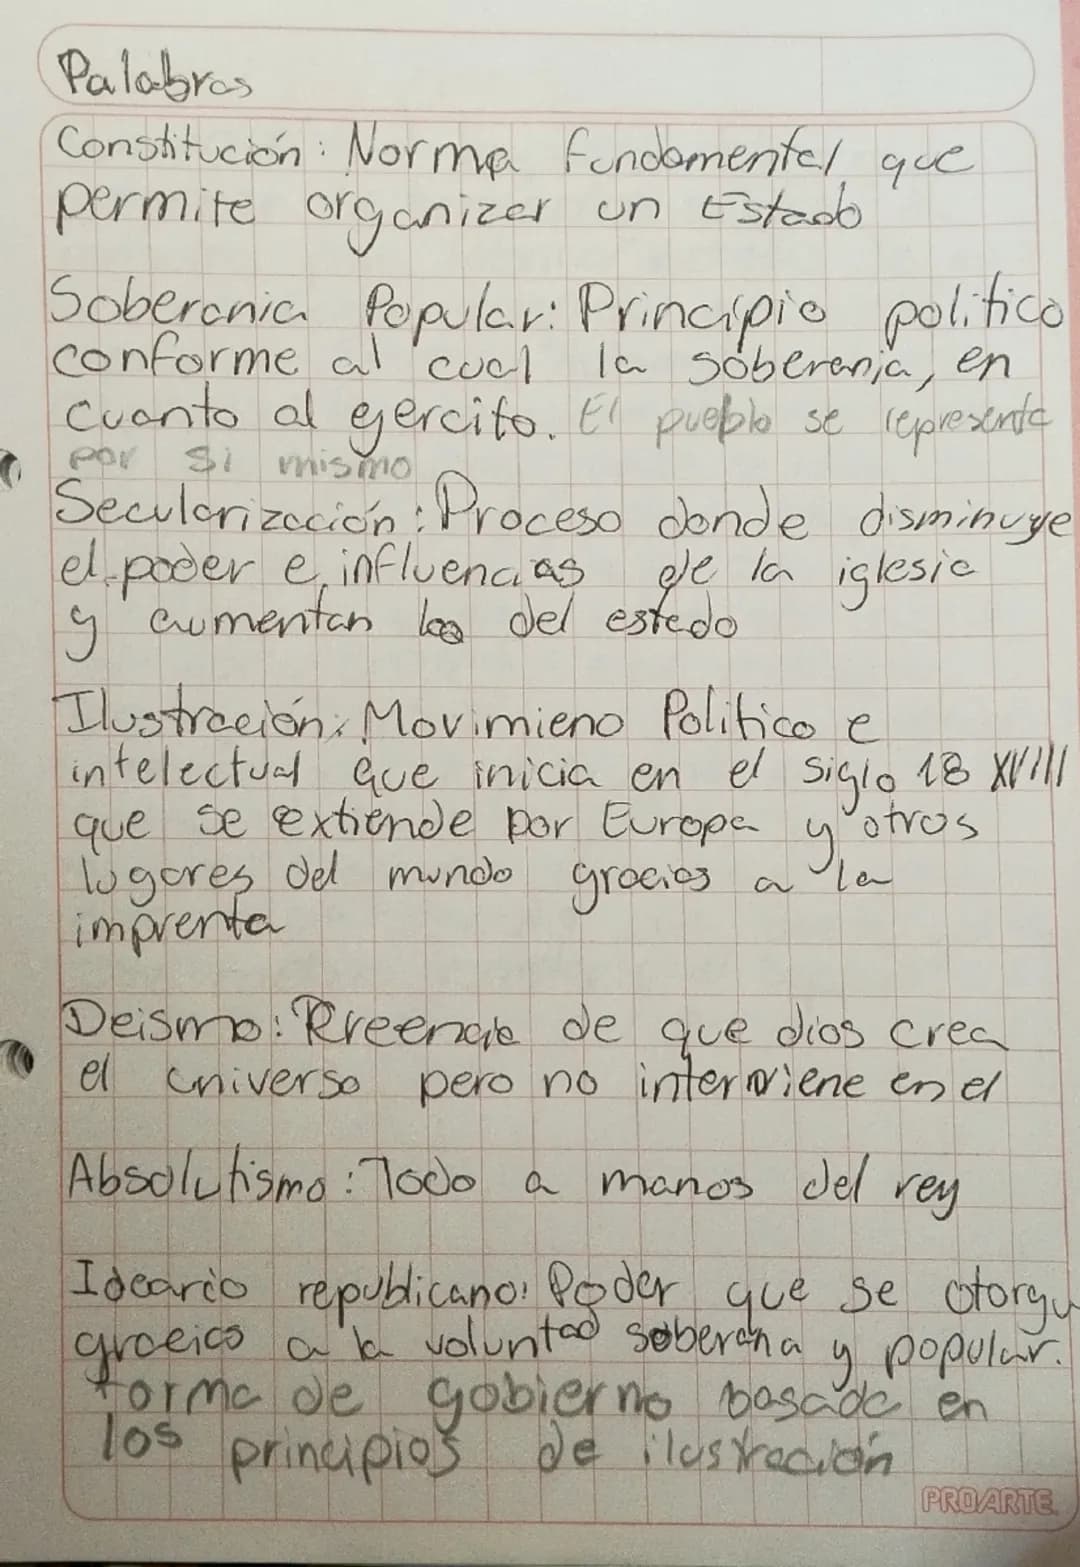 Palabras
Constitución: Norma fundamental que
permite organizar un Estado
Soberania Popular: Principio politico
conforme al cual la soberenia, en
cuanto al ejercito. El pueblo se representa
por si mismo
Secularización: Proceso donde disminuye
el poder e influencias de la iglesia
y aumentan las del estado
Ilustración: Movimieno Politico e
intelectual que inicia en el siglo 18 XVIII
que se extiende por Europa y otros
lugares del mundo gracias a la
imprenta
Deismo: Creencia de que dios crea
el universo pero no interviene en el
Absolutismo: Todo a manos del rey
Ideario republicano: Poder que se otorga
gracias a la voluntad soberana y popular.
forma de gobierno basada en
los principios de ilustración
PROARTE